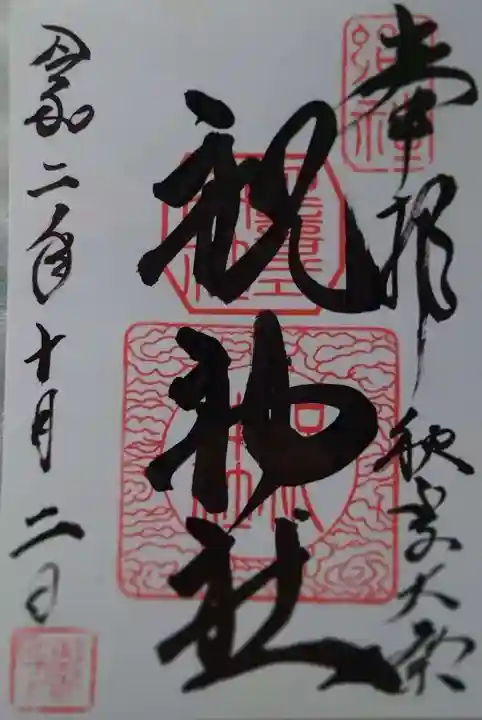 奉拝
秋季大祭
祝神社
令和二年十月二日